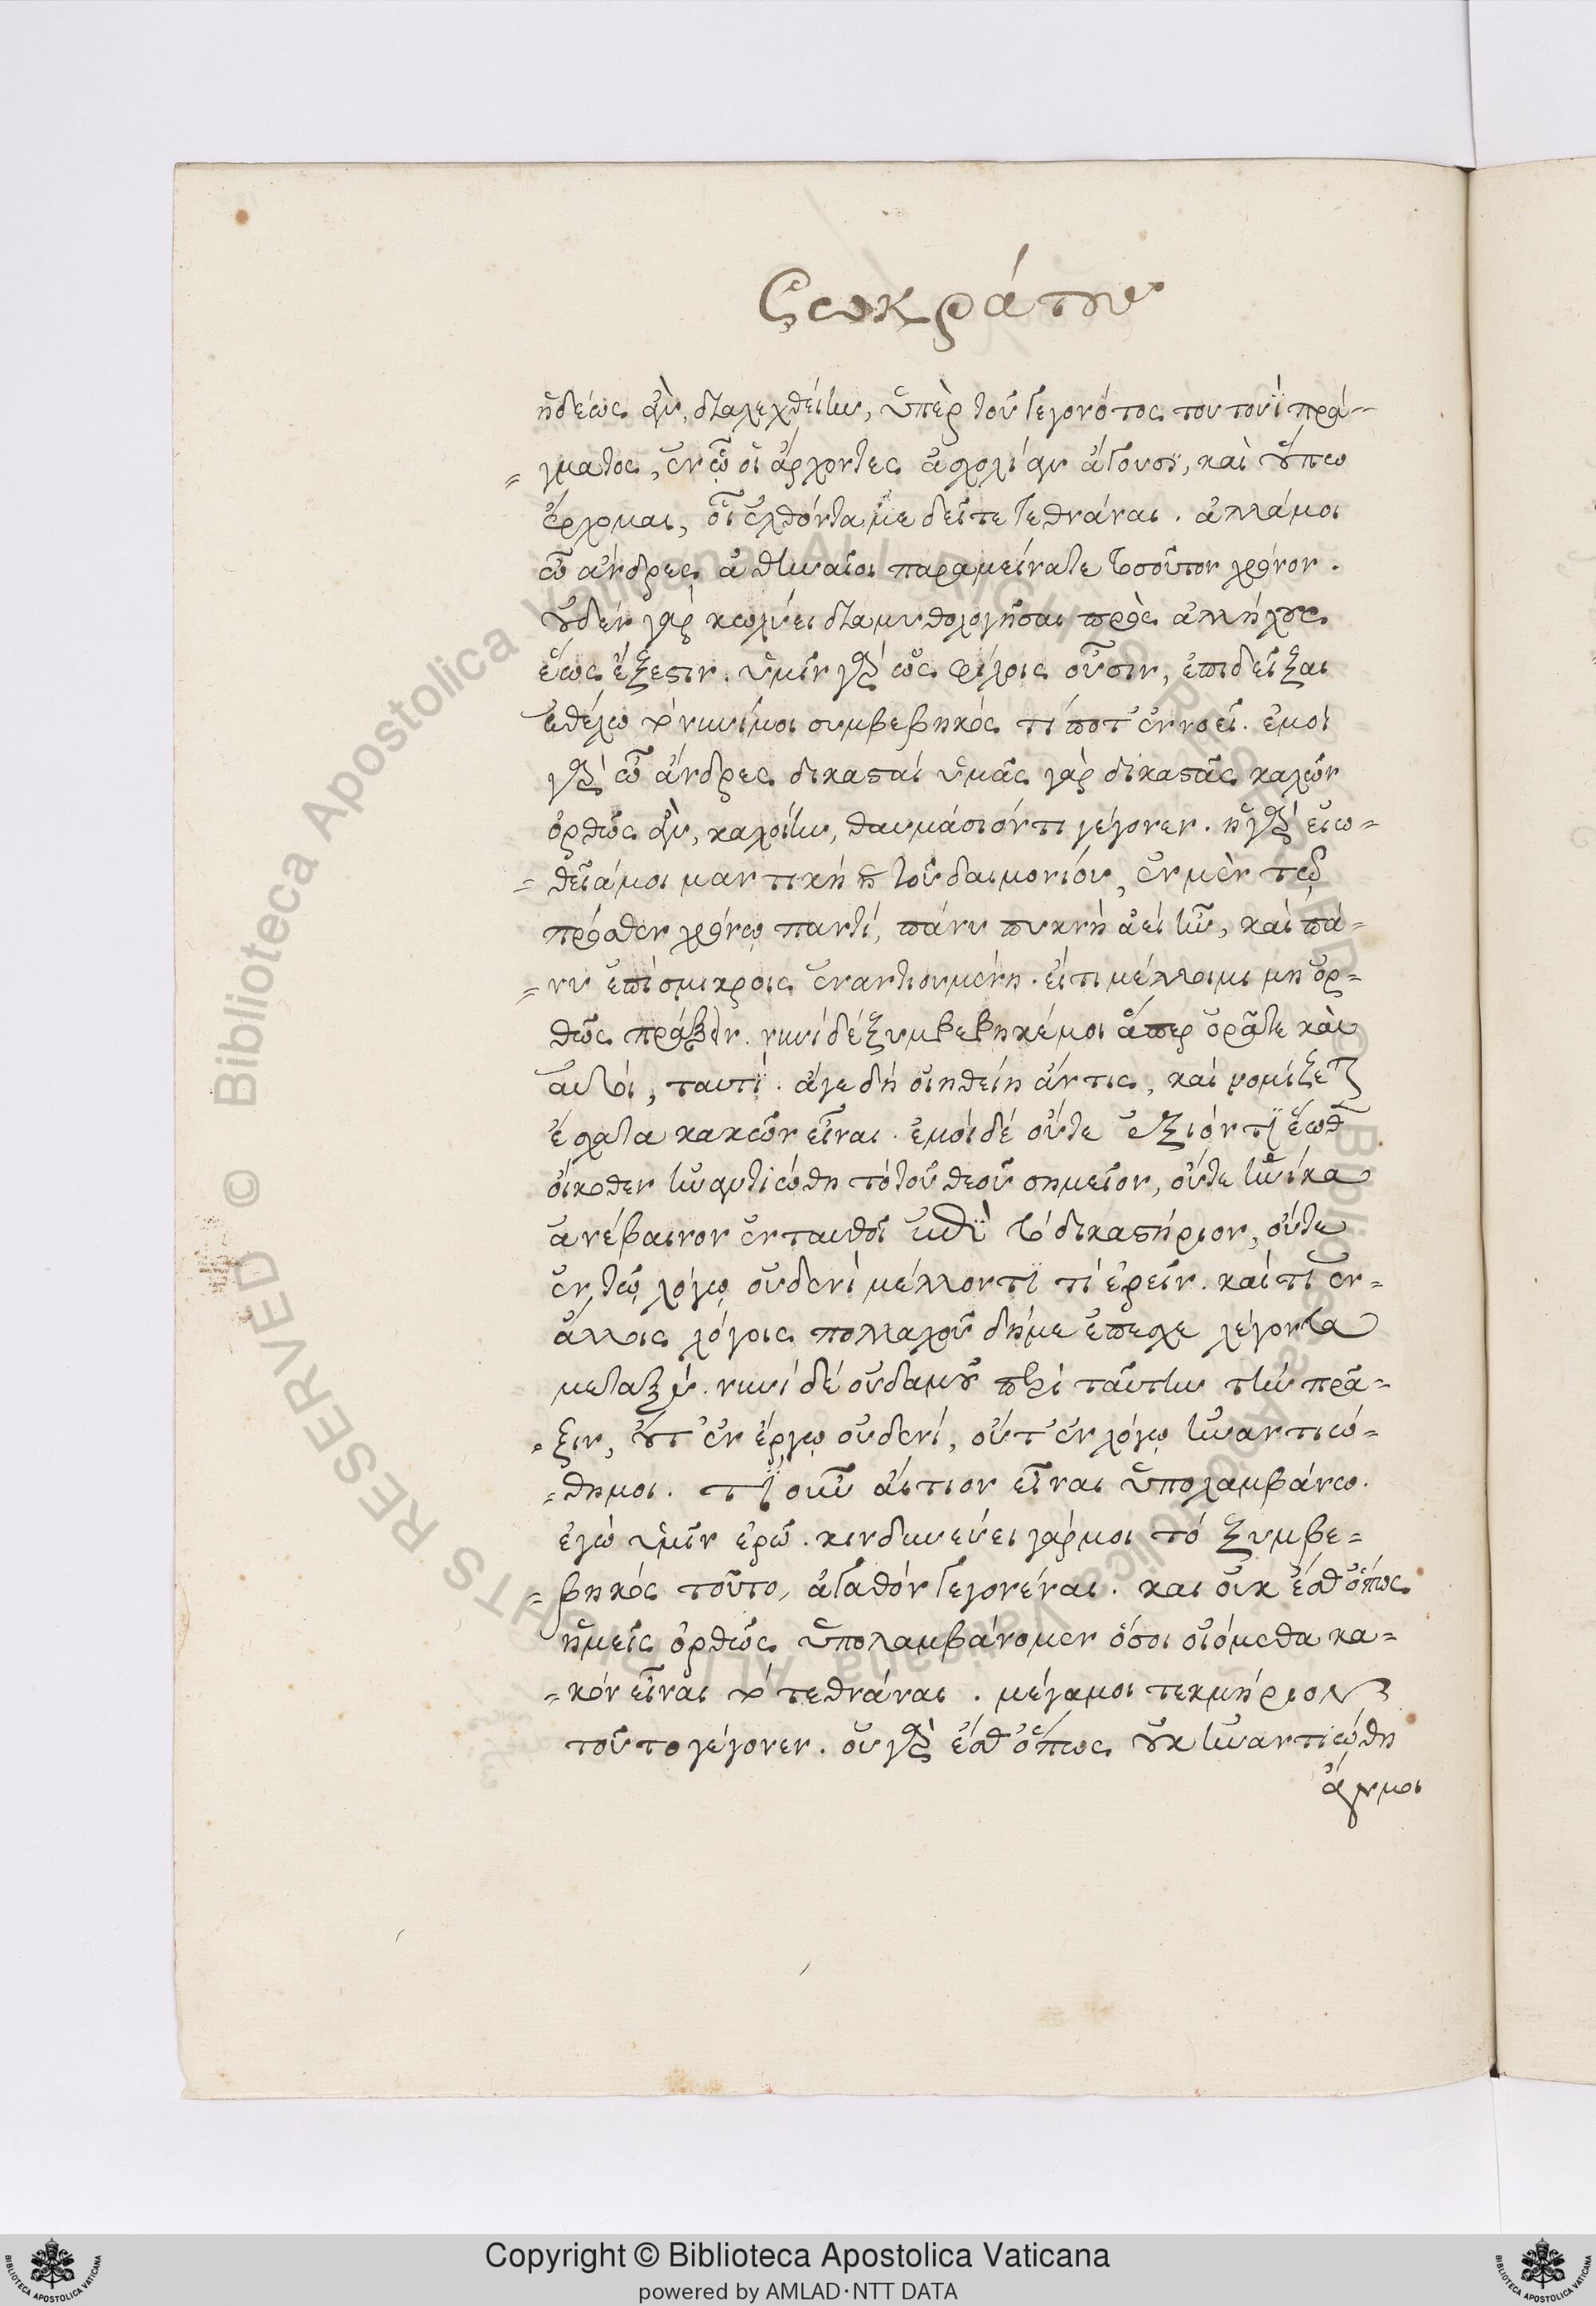 Σωκράτους
ἡδέως ἂν, διαλεχθείην, ὑπὲρ τοῦ γεγονότος τουτουῒ πρά-
=γματος, ἐν ᾧ οἱ ἄρχοντες ἀσχολίαν ἄγουσϊ, καὶ οὔπω
ἔρχομαι, οἷ ἐλθόντα με δεῖ τεθνάναι. ἀλλάμοι
ὦ ἄνδρες ἀθηναῖοι παραμείνατε τοσοῦτον χρόνον.
οὐδέν γὰρ κωλύει διαμυθολογῆσαι πρὸς ἀλλήλους
ἕως ἔξεστιν. ὑμῖν γὰρ ὡς φίλοις οὖσιν, ἐπιδεῖξαι
ἐθέλω τό νυνίμοι συμβεβηκός τί ποτ' ἐννοεῖ. ἐμοί
γὰρ ὦ ἄνδρες δικασταί ὑμᾶς γὰρ δικαστᾶς καλῶν
ὀρθῶς ἂν, καλοίην, θαυμάσιόντι γέγονεν. ἡ γὰρ εἰω=
=θεῖάμοι μαντική ἡ τοῦ δαιμονίου, ἐν μὲν τῷ
πρόσθεν χρόνῳ παντί, πάνυ πυκνή ἀεί ἦν, καί πά=
=νυ ἐπί σμικροῖς ἐναντιουμένη. εἴτι μέλλοιμι μή ὀρ=
θῶς πράξειν. νυνί δέ ξυμβεβηκέμοι ἅπερ ὁρᾶτε καὶ
αὐτοί, ταυτϊ. ἅγε δή οἰηθείη ἄντις, καί νομίζεται
ἔσχατα κακῶν εἶναι. ἐμοί δέ οὔτε ἐξιόντϊ ἕωθεν
οἴκοθεν ἠναντιώθη τό τοῦ θεοῦ σημεῖον, οὔτε ἡνίκα
ἀνέβαινον ἐνταυθοῖ ἐπὶ τό δικαστήριον, οὔτε
ἐν τῷ λόγῳ οὐδενὶ μέλλοντϊ τί ἐρεῖν. καίτι ἐν=
ἄλλοις λόγοις πολλαχοῦ δήμε ἐπέσχε λέγοντα
μεταξύ. νυνί δέ οὐδαμοῦ περί ταύτην τήν πρᾶ=
=ξιν, οὔτ' ἐν ἔργῳ οὐδενί, οὔτ' ἐν λόγῳ ἠναντιώ=
=θημοι. τί οὖν αἴτιον εἶναι ὑπολαμβάνω.
ἐγώ ὑμῖν ἐρῶ. κινδυνεύει γάρμοι τό ξυμβε=
=βηκός τοῦτο, ἀγαθόν γεγονέναι. και οὐκ ἔσθ' ὅπως
ἡμεῖς ὀρθῶς ὑπολαμβάνομεν ὅσοι οἰόμεθα κα=
=κόν εἶναι τό τεθνάναι. μέγαμοι τεκμήριον
τοῦτο γέγονεν. οὐ γὰρ ἔσθ' ὅπως οὐκ ἠναντιώθη
ἄνμοι